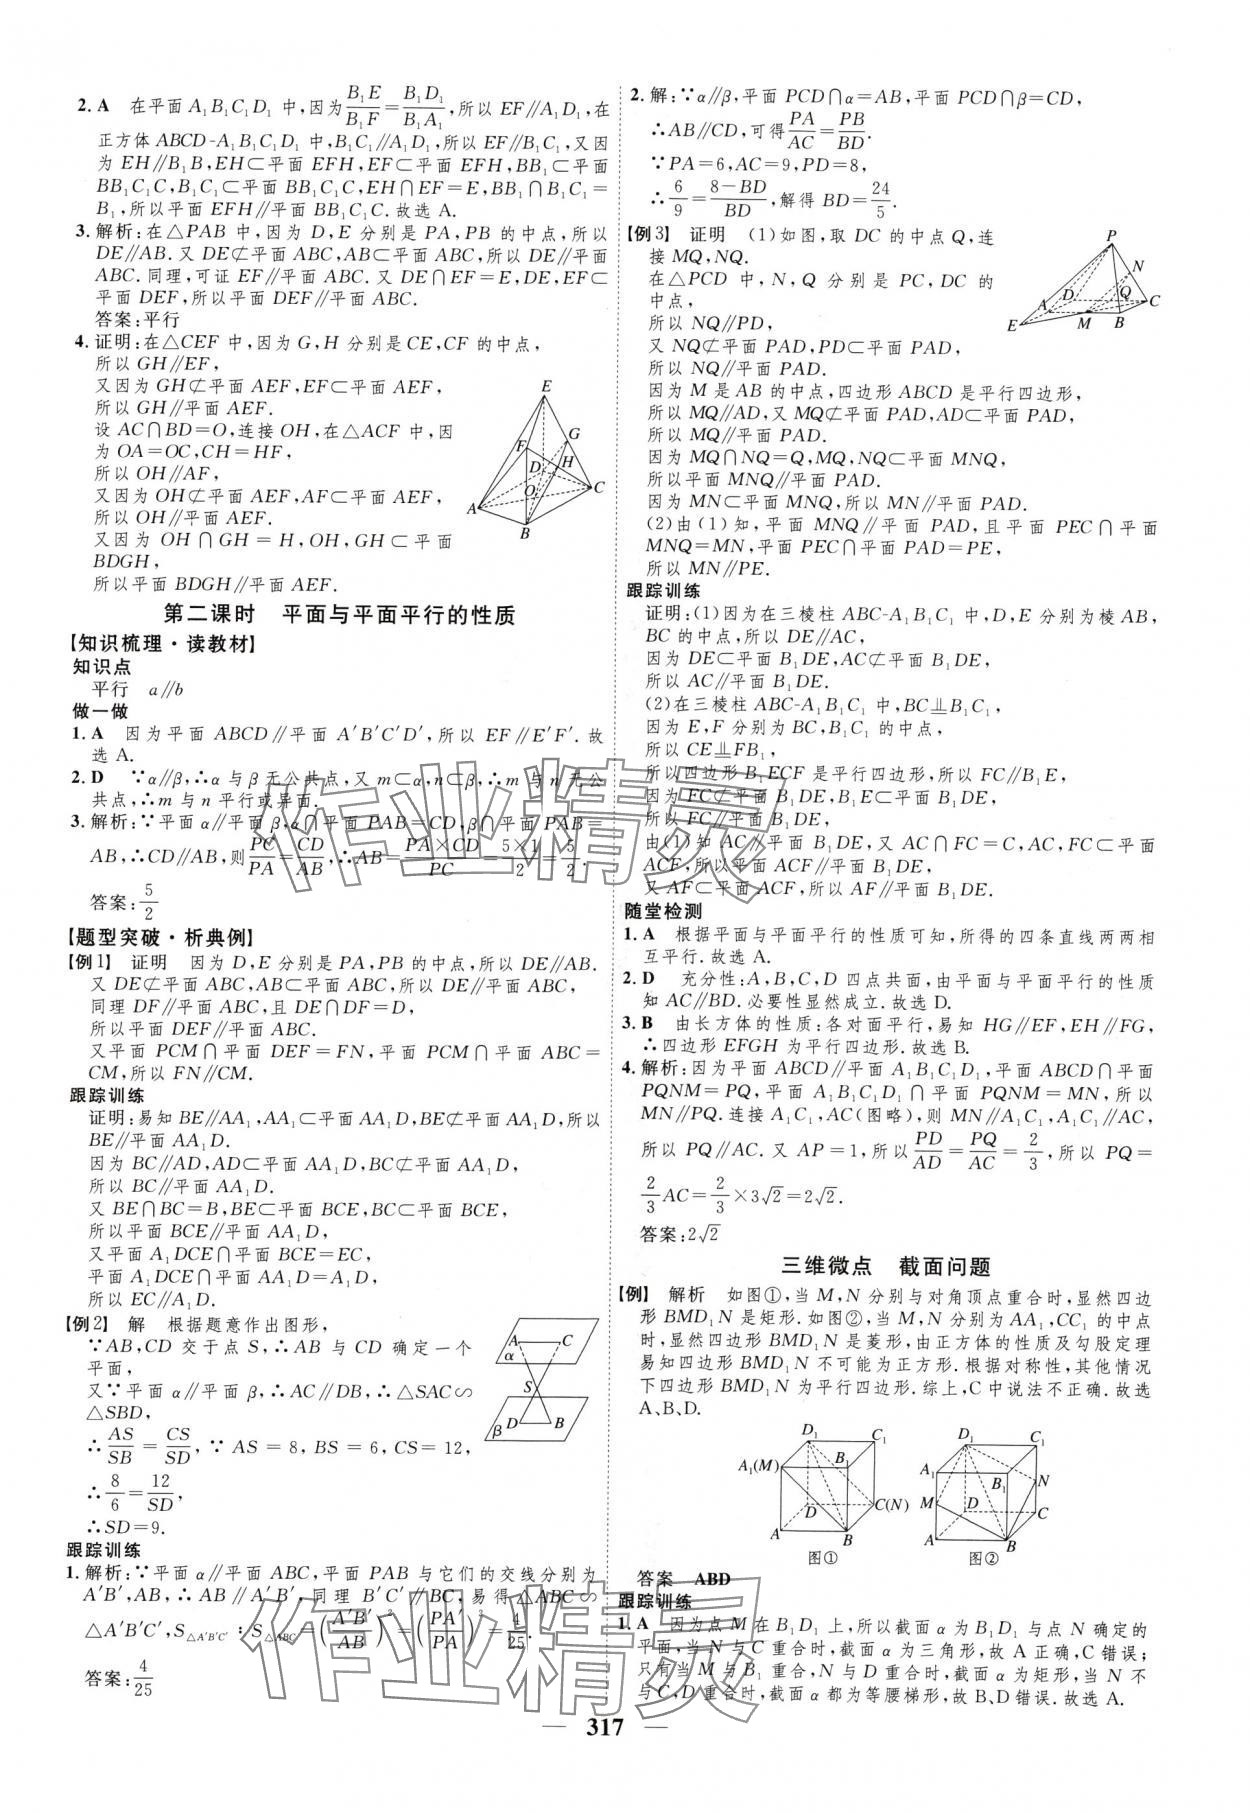 2. A　在平面 A₁B₁C₁D₁ 中,因为B₁E/B₁F=B₁D₁/B₁A₁,所以 EF∥A₁D₁,在
正方体 ABCD-A₁B₁C₁D₁ 中,B₁C₁∥A₁D₁,所以 EF∥B₁C₁,又因
为 EH∥B₁B,EH⊂平面 EFH,EF⊂平面 EFH,BB₁⊂平面
BB₁C₁C,B₁C₁⊂平面 BB₁C₁C,EH∩EF=E,BB₁∩B₁C₁=
B₁,所以平面 EFH∥平面 BB₁C₁C.故选 A.
3. 解析:在△PAB 中,因为 D,E 分别是 PA,PB 的中点,所以
DE∥AB.又 DE⊄平面 ABC,AB⊂平面 ABC,所以 DE∥平面
ABC.同理,可证 EF∥平面 ABC.又 DE∩EF=E,DE,EF⊂
平面 DEF,所以平面 DEF∥平面 ABC.
答案:平行
4. 证明:在△CEF 中,因为 G,H 分别是 CE,CF 的中点,
所以 GH∥EF,
又因为 GH⊄平面 AEF,EF⊂平面 AEF,
所以 GH∥平面 AEF.
设 AC∩BD=O,连接 OH,在△ACF 中,因
为 OA=OC,CH=HF,
所以 OH∥AF,
又因为 OH⊄平面 AEF,AF⊂平面 AEF,
所以 OH∥平面 AEF.
又因为 OH∩GH=H,OH,GH⊂平面
BDGH,
所以平面 BDGH∥平面 AEF.
E
F
G
D
H
O
C
A
B
第二课时　平面与平面平行的性质
【知识梳理·读教材】
知识点
平行　a∥b
做一做
1. A　因为平面 ABCD∥平面 A′B′C′D′,所以 EF∥E′F′.故
选 A.
2. D　∵α∥β,∴α 与 β 无公共点,又 m⊂α,n⊂β,∴m 与 n 无公
共点,∴m 与 n 平行或异面.
3. 解析:∵平面 α∥平面 β,α∩平面 PAB=CD,β∩平面 PAB=
AB,∴CD∥AB,则PC/PA=CD/AB,∴AB=PA×CD/PC=5×1/2=5/2.
答案:5/2
【题型突破·析典例】
【例1】　证明　因为 D,E 分别是 PA,PB 的中点,所以 DE∥AB.
又 DE⊄平面 ABC,AB⊂平面 ABC,所以 DE∥平面 ABC,
同理 DF∥平面 ABC,且 DE∩DF=D,
所以平面 DEF∥平面 ABC.
又平面 PCM∩平面 DEF=FN,平面 PCM∩平面 ABC=
CM,所以 FN∥CM.
跟踪训练
证明:易知 BE∥AA₁,AA₁⊂平面 AA₁D,BE⊄平面 AA₁D,所以
BE∥平面 AA₁D.
因为 BC∥AD,AD⊂平面 AA₁D,BC⊄平面 AA₁D,
所以 BC∥平面 AA₁D.
又 BE∩BC=B,BE⊂平面 BCE,BC⊂平面 BCE,
所以平面 BCE∥平面 AA₁D,
又平面 A₁DCE∩平面 BCE=EC,
平面 A₁DCE∩平面 AA₁D=A₁D,
所以 EC∥A₁D.
【例2】　解　根据题意作出图形,
∵AB,CD 交于点 S,∴AB 与 CD 确定一个
平面,
又∵平面 α∥平面 β,∴AC∥DB,∴△SAC∽
△SBD,
∴AS/SB=CS/SD,∵AS=8,BS=6,CS=12,
∴8/6=12/SD,
∴SD=9.
A C
α
S
D B
β
跟踪训练
1. 解析:∵平面 α∥平面 ABC,平面 PAB 与它们的交线分别为
A′B′,AB,∴AB∥A′B′,同理 B′C′∥BC,易得△ABC∽
△A′B′C′,S△A′B′C′:S△ABC=(A′B′/AB)²=(PA′/PA)²=4/25.
答案:4/25
2. 解:∵α∥β,平面 PCD∩α=AB,平面 PCD∩β=CD,
∴AB∥CD,可得PA/AC=PB/BD.
∵PA=6,AC=9,PD=8,
∴6/9=(8-BD)/BD,解得 BD=24/5.
【例3】　证明　(1)如图,取 DC 的中点 Q,连
接 MQ,NQ.
在△PCD 中,N,Q 分别是 PC,DC 的
中点,
所以 NQ∥PD,
又 NQ⊄平面 PAD,PD⊂平面 PAD,
所以 NQ∥平面 PAD.
因为 M 是 AB 的中点,四边形 ABCD 是平行四边形,
所以 MQ∥AD,又 MQ⊄平面 PAD,AD⊂平面 PAD,
所以 MQ∥平面 PAD.
因为 MQ∩NQ=Q,MQ,NQ⊂平面 MNQ,
所以平面 MNQ∥平面 PAD.
因为 MN⊂平面 MNQ,所以 MN∥平面 PAD.
(2)由(1)知,平面 MNQ∥平面 PAD,且平面 PEC∩平面
MNQ=MN,平面 PEC∩平面 PAD=PE,
所以 MN∥PE.
P
N
A
D
Q
C
E
M
B
跟踪训练
证明:(1)因为在三棱柱 ABC-A₁B₁C₁ 中,D,E 分别为棱 AB,
BC 的中点,所以 DE∥AC,
因为 DE⊂平面 B₁DE,AC⊄平面 B₁DE,
所以 AC∥平面 B₁DE.
(2)在三棱柱 ABC-A₁B₁C₁ 中,BC⊥̳B₁C₁,
因为 E,F 分别为 BC,B₁C₁ 的中点,
所以 CE⊥̳FB₁,
所以四边形 B₁ECF 是平行四边形,所以 FC∥B₁E,
因为 FC⊄平面 B₁DE,B₁E⊂平面 B₁DE,
所以 FC∥平面 B₁DE,
由(1)知 AC∥平面 B₁DE,又 AC∩FC=C,AC,FC⊂平面
ACF,所以平面 ACF∥平面 B₁DE,
又 AF⊂平面 ACF,所以 AF∥平面 B₁DE.
随堂检测
1. A　根据平面与平面平行的性质可知,所得的四条直线两两相
互平行.故选 A.
2. D　充分性:A,B,C,D 四点共面,由平面与平面平行的性质
知 AC∥BD.必要性显然成立.故选 D.
3. B　由长方体的性质:各对面平行,易知 HG∥EF,EH∥FG,
∴四边形 EFGH 为平行四边形.故选 B.
4. 解析:因为平面 ABCD∥平面 A₁B₁C₁D₁,平面 ABCD∩平面
PQNM=PQ,平面 A₁B₁C₁D₁∩平面 PQNM=MN,所以
MN∥PQ.连接 A₁C₁,AC(图略),则 MN∥A₁C₁,A₁C₁∥AC,
所以 PQ∥AC.又 AP=1,所以PD/AD=PQ/AC=2/3,所以 PQ=
2/3AC=2/3×3√2=2√2.
答案:2√2
三维微点　截面问题
【例】　解析　如图①,当 M,N 分别与对角顶点重合时,显然四边
形 BMD₁N 是矩形.如图②,当 M,N 分别为 AA₁,CC₁ 的中点
时,显然四边形 BMD₁N 是菱形,由正方体的性质及勾股定理
易知四边形 BMD₁N 不可能为正方形.根据对称性,其他情况
下四边形 BMD₁N 为平行四边形.综上,C中说法不正确.故选
A、B、D.
D₁ C₁
A₁(M) B₁
D C(N)
A B
图①
D₁ C₁
A₁ B₁ N
M D C
A B
图②
答案　ABD
跟踪训练
1. A　因为点 M 在 B₁D₁ 上,所以截面 α 为 B₁D₁与点 N 确定的
平面,当 N 与 C 重合时,截面 α 为三角形,故 A 正确,C错误;
只有当 M 与 B₁ 重合,N 与 D 重合时,截面 α 为矩形,当 N 不
与 C,D 重合时,截面 α 都为等腰梯形,故 B、D错误.故选 A.
— 317 —
作业精灵
作业精灵